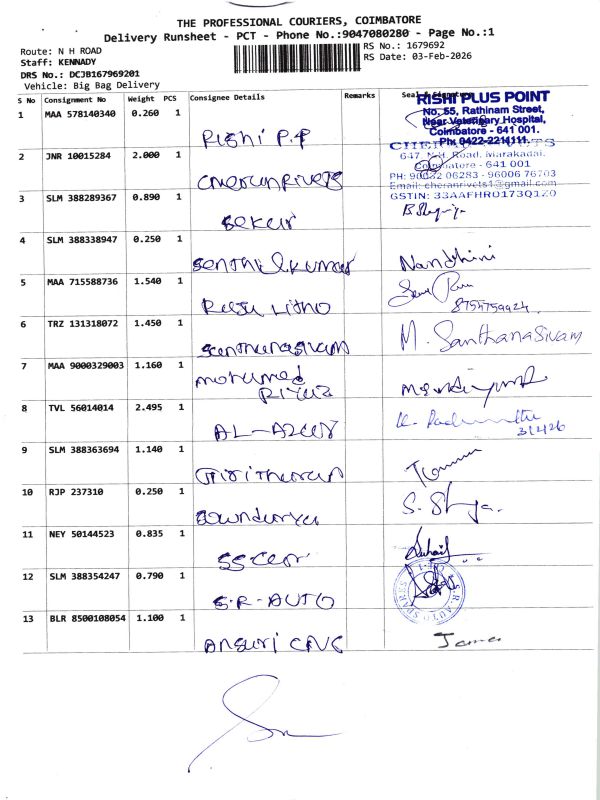 THE PROFESSIONAL COURIERS, COIMBATORE
Delivery Runsheet - PCT - Phone No.:9047080280 - Page No.:1
Route: N H ROAD
RS No.: 1679692
Staff: KENNADY
RS Date: 03-Feb-2026
DRS No.: DCJB167969201
Vehicle: Big Bag Delivery
S No Consignment No Weight PCS Consignee Details Remarks Seal & Signature
1 MAA 578140340 0.260 1 Rishi P.P
RISHI PLUS POINT
No. 55, Rathinam Street,
Near Veterinary Hospital,
Coimbatore - 641 001.
Ph: 0422-2214111.
2 JNR 10015284 2.000 1 Cherunrivets
647, N.H. Road, Marakadai,
Coimbatore - 641 001
PH: 90032 06283 - 96006 76703
Email: cheranrivets1@gmail.com
GSTIN: 33AAFHR0173Q1Z0
3 SLM 388289367 0.890 1 Sekar
4 SLM 388338947 0.250 1 Senthilkumar Nandhini
5 MAA 715588736 1.540 1 Raju Litho
6 TRZ 131318072 1.450 1 Santhanasivam M. Santhanasivam
7 MAA 9000329003 1.160 1 Mohamed Riyaz
8 TVL 56014014 2.495 1 AL-Azar
9 SLM 388363694 1.140 1
10 RJP 237310 0.250 1 Sowndarya
11 NEY 50144523 0.835 1 Suhail
12 SLM 388354247 0.790 1 S.R-AUTO
13 BLR 8500108054 1.100 1 Ansuri CNC